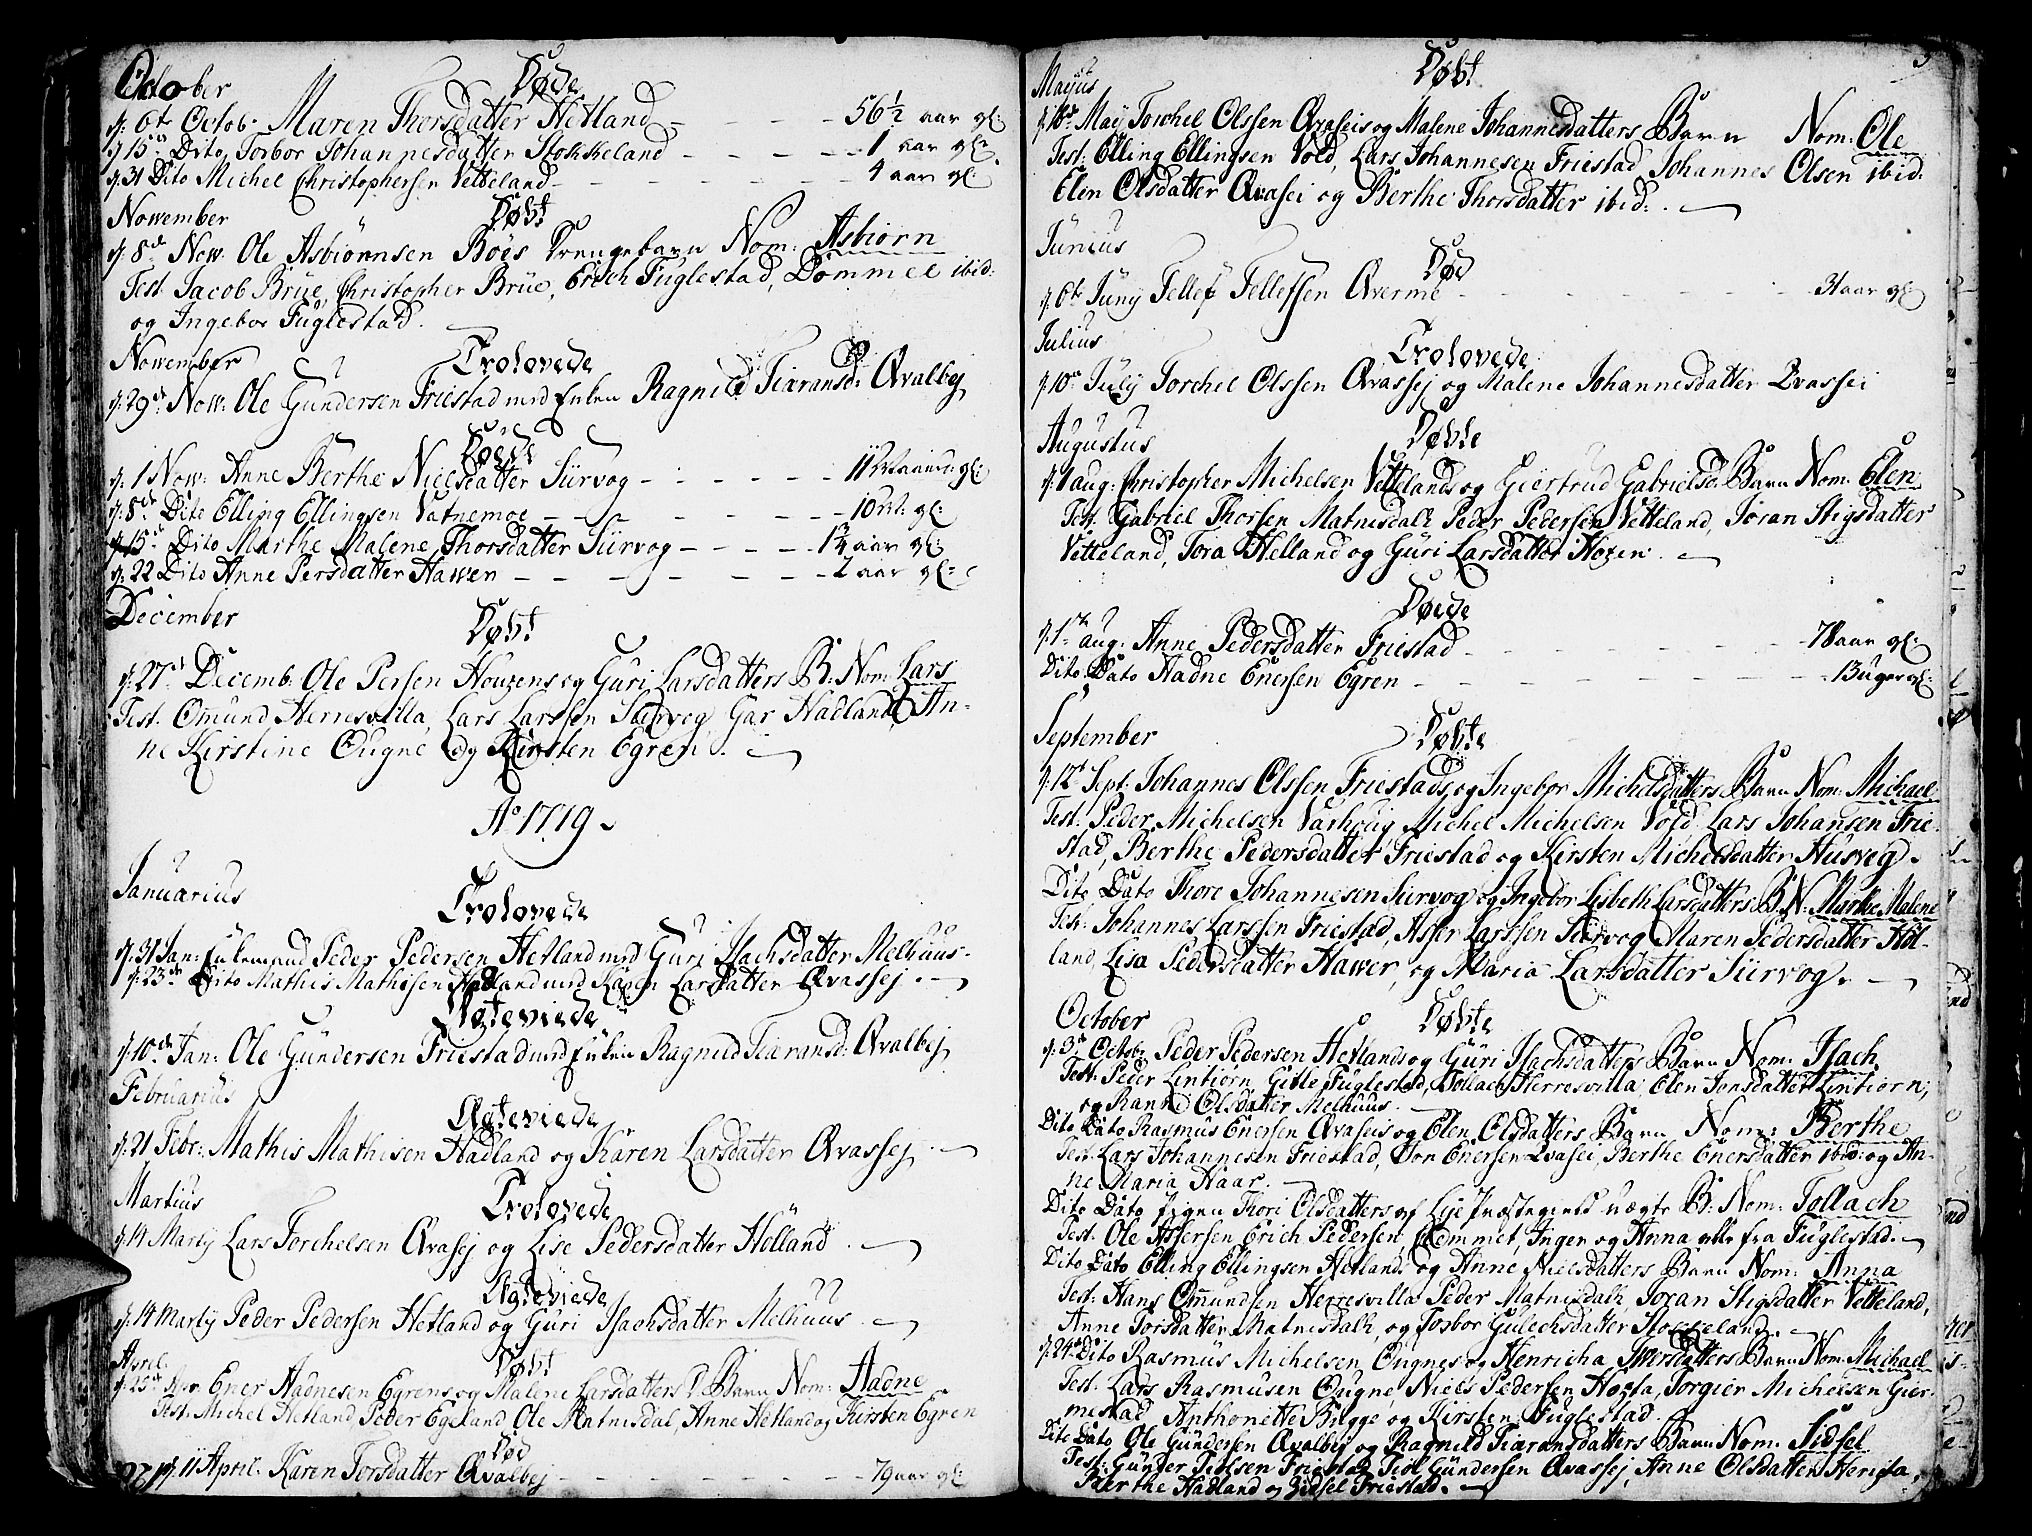 October Døde
d. 6te Octob. Maren Thorsdatter Hetland - - - - 56 1/2 aar gl:
d 15de Dito Torbor Johannesdatter Stokkeland - - - - 1 aar gl:
d. 31 Dito Michel Christophersen Vetteland - - - - 4 aar gl:
November Døbt
d. 8de Now. Ole Asbiörnsen Böes Drengebarn Nom: Asbiørn
Test. Jacob Brüe, Christopher Brüe, Erich Füglestad, Dommel ibid:
og Ingebor Füglestad.
Nowember Trolovede
d. 29de Now: Ole Gündersen Friestad med Enken Ragnild Tiøransd: Qvalbej
Døede
d. 1 Now: Anne Berthe Nielsdatter Siirvog - - - - gl:
d. 8de Dito Elling Ellingsen Vatnemoe - - - - gl:
d. 15de Dito Marthe Malene Thorsdatter Siirvog - - - - 1 3/4 aar gl:
d. 22 Dito Anne Persdatter Hawer - - - - 2 aar gl:
December Døbt
d. 27de Decemb: Ole Persen Houzens og Güri Larsdatters B: Nom: Lars
Test. Ommund Herresvilla, Lars Larssen Siirvog, Gar Hadland, An-
ne Kirstine Ougne og Kirsten Egren.
Ao 1719.
Januarius
Trolovede
d. 31 Jan: Enkemand Peder Pedersen Hetland med Guri Isachsdatter Melhuus.
d. 23de Dito Mathis Mathisen Hadland med Karen Larsdatter Qvassej.
Ægteviede
d. 10de Jan: Ole Gündersen Friestad med Enken Ragnild Tiøransd: Qvalbej
Februarius
Ægteviede
d. 21 Febr: Mathis Mathisen Hadland og Karen Larsdatter Qvassej.
Martius Trolovede
d. 14 Martij Lars Torchelsen Qvasej og Lise Pedersdatter Hölland.
Ægteviede
d. 14 Martij Peder Pedersen Hetland og Guri Isachsdatter Melhuus.
April. Døbt
d. 25de Apr. Ener Hadnesen Egrens og Malene Larsdatters Barn Nom: Hadne
Test. Michel Hetland, Peder Egeland, Ole Matnisdal, Anne Hetland og Kirsten Egren
Død
d. 11 April. Karen Torsdatter Qvalbej - - - - 79 aar gl:
Majus Døbt
d. 18de Maij Torchel Olssen Qvaseis og Malene Johannesdatters Barn Nom: Ole
Test: Elling Ellingsen Vold, Lars Johannesen Friestad, Johannes Olsen ibid:
Elen Olsdatter Qvasei og Berthe Thorsdatter ibid:
Junius
Død
d. 6te Junij Tellef Tellefsen Qverme - - - - 31 aar gl:
Julius
Trolovede
d. 10de Julij Torchel Olssen Qvassej og Malene Johannesdatter Qvassei
Augustus Døbte
d. 1 aug: Christopher Michelsen Vettelands og Giertrud Gabrielsd: Barn Nom: Elen
Test. Gabriel Thorsen Matnisdalk, Peder Pedersen Vetteland, Joran Stigsdatter
Vetteland, Tora Helland og Güri Larsdatter Hozen.
Døede
d. 1de aug: Anne Pedersdatter Friestad - - - - 78 aar gl:
Dito Dato Hadne Enersen Egren - - - - 13 uger gl:
September Døbte
d. 12te Sept: Johannes Olssen Friestads og Ingebor Michelsdatters Barn Nom: Michael
Test: Peder Michelsen Varholig, Michel Michelsen Vold, Lars Johansen Frie-
stad, Berthe Pedersdatter Friestad og Kirsten Michelsdatter Husveg.
Dito Dato Thore Johannesen Siirvog og Ingebor Lisbeth Larsdatters B. N: Marthe Malene
Test: Johannes Larssen Friestad, Asser Larssen Siirvog, Maren Pedersdatter Höl-
land, Lisa Pedersdatter Hawer, og Maria Larsdatter Siirvog.
October Døbte
d. 3de Octobr. Peder Pedersen Hetlands og Güri Isachsdatters Barn Nom: Isach
Test: Peder Lintiørn, Gitle Füglestad, Tollach Herresvilla, Elen Jonsdatter Lintiørn,
og Rannild Olsdatter Melhuus.
Dito Dato Rasmus Enersen Qvaseis og Elen Olsdatters Barn Nom: Berthe
Test: Lars Johannesen Friestad, Jon Enersen Qvasei, Berthe Enersdatter ibid: og An-
ne Maria Haar.
Dito Dato Thori Olsdatters af Lye Præstegield uægte B: Nom: Tollach
Test. Ole Assersen, Erich Pedersen, Dommet, Inger og Anna alle fra Füglestad.
Dito Dato Elling Ellingsen Hetlands og Anne Nielsdatters Barn Nom: Anna
Test: Hans Ommundsen Herresvilla, Peder Matnisdalk, Joran Stigsdatter Vetteland,
Anne Torsdatter Matnisdalk, og Torbor Gulechsdatter Stokkeland.
d. 24de Dito Rasmus Michelsen Ougnes og Henricha Iwersdatters Barn Nom: Michael
Test. Lars Rasmusen Ougne, Niels Pedersen Hogta, Torgier Michelsen Gier-
mestad, Anthonette Bugge, og Kirsten Fuglestad.
Dito Dato Ole Gündersen Qvalbej og Ragnild Tiøransdatters Barn Nom: Sidsel
Test: Gunder Tielsen Friestad, Tiel Gündersen Qvassej, Anne Olsdatter Herigta,
Berthe Hadland og Zidsel Friestad.